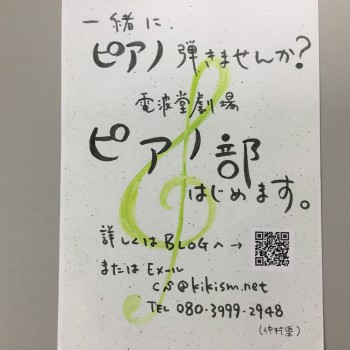 一緒に.
ピアノ弾きませんか?
電波堂劇場
ピアノ部
はじめます。
詳しくはBLOGへ→
または Exール
cls@kikism.net
TEL 080-3999-2948